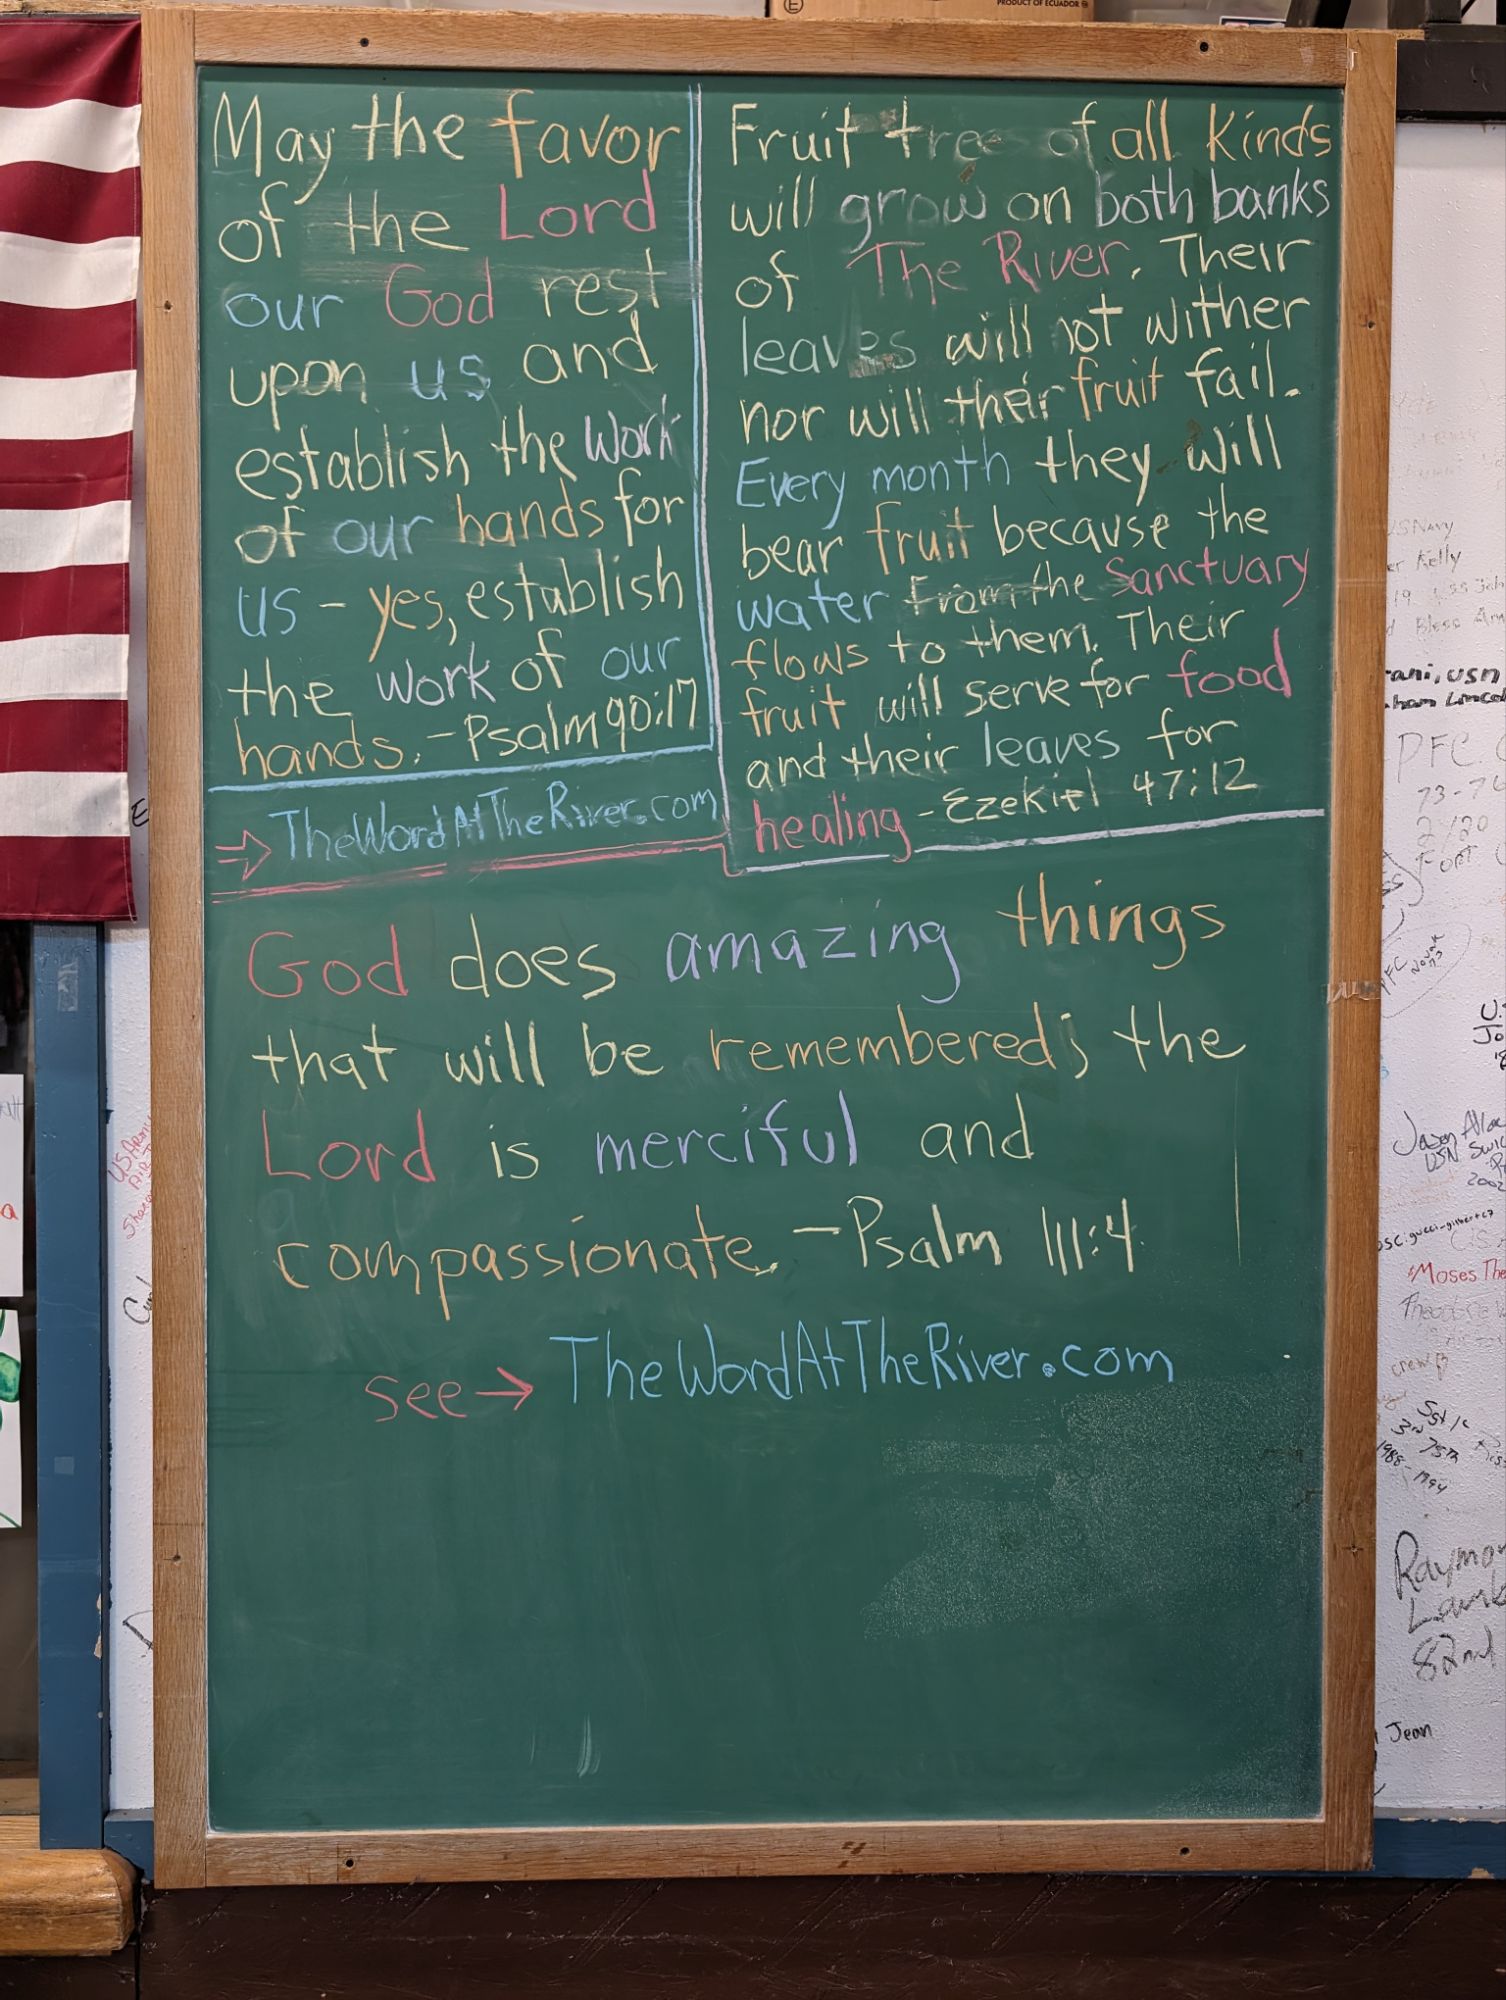 PRODUCT OF ECUADOR
May the favor
of the Lord
our God rest
upon us and
establish the Work
of our hands for
us - yes, establish
the work of our
hands. - Psalm 90:17
→ TheWordAtTheRiver.com
Fruit tree of all kinds
will grow on both banks
of The River. Their
leaves will not wither
nor will their fruit fail.
Every month they will
bear fruit because the
water from the Sanctuary
flows to them. Their
fruit will serve for food
and their leaves for
healing - Ezekiel 47:12
God does amazing things
that will be remembered; the
Lord is merciful and
compassionate. - Psalm 111:4
see → TheWordAtTheRiver.com
US NAVY
Kelly
Bless
rani, usn
ham Lincol
PFC.
73-76
FORT
PFC
Jason
USN
2002
Moses The
crew
3rd 75th
1988-1994
Raymon
82nd
Jean
US Army